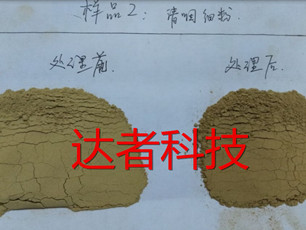 样品2: 细粉.
处理前. 处理后.
达者科技